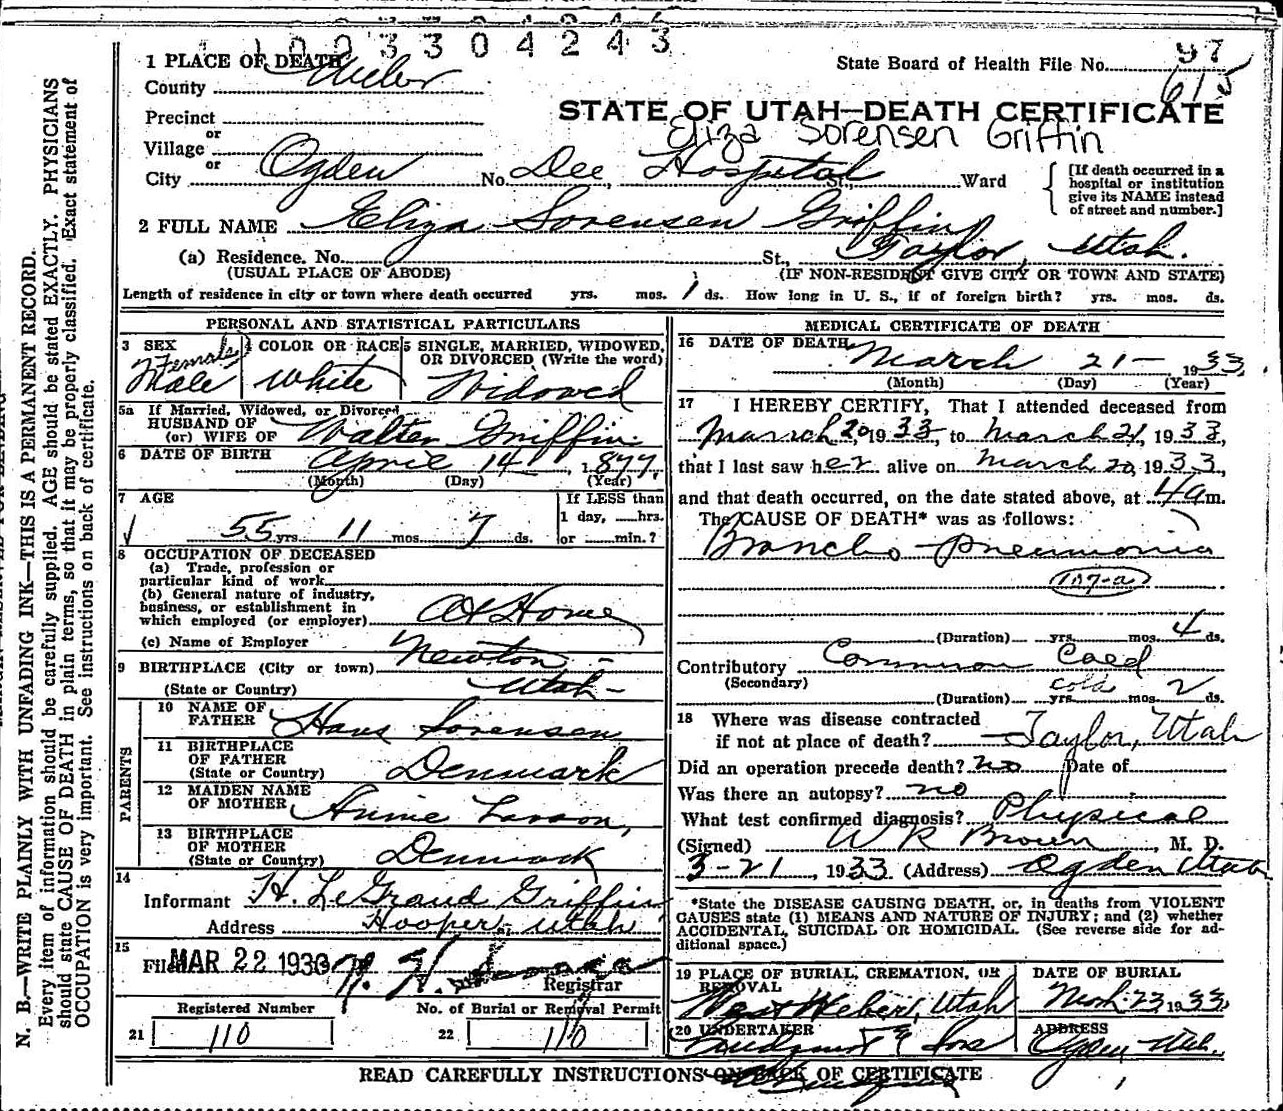 1003304243
1 PLACE OF DEATH
County Weber
State Board of Health File No. 97
615
STATE OF UTAH—DEATH CERTIFICATE
Eliza Sorensen Griffin
Precinct
or
Village
or
City Ogden No. Dee Hospital St., Ward
[If death occurred in a hospital or institution give its NAME instead of street and number.]
2 FULL NAME Eliza Sorensen Griffin
(a) Residence. No. St., Taylor, Utah.
(USUAL PLACE OF ABODE) (IF NON-RESIDENT GIVE CITY OR TOWN AND STATE)
Length of residence in city or town where death occurred yrs. mos. 1 ds. How long in U. S., if of foreign birth? yrs. mos. ds.
PERSONAL AND STATISTICAL PARTICULARS
3 SEX Female Male
4 COLOR OR RACE White
5 SINGLE, MARRIED, WIDOWED, OR DIVORCED (Write the word) Widowed
5a If Married, Widowed, or Divorced
HUSBAND OF
(or) WIFE OF Walter Griffin
6 DATE OF BIRTH April 14, 1877
(Month) (Day) (Year)
7 AGE
55 yrs. 11 mos. 7 ds.
If LESS than
1 day, hrs.
or min.?
8 OCCUPATION OF DECEASED
(a) Trade, profession or
particular kind of work
(b) General nature of industry,
business, or establishment in
which employed (or employer) At Home
(c) Name of Employer
9 BIRTHPLACE (City or town) Newton -
(State or Country) Utah -
PARENTS
10 NAME OF FATHER Hans Sorensen
11 BIRTHPLACE OF FATHER (State or Country) Denmark
12 MAIDEN NAME OF MOTHER Annie Larson,
13 BIRTHPLACE OF MOTHER (State or Country) Denmark
14
Informant H. LeGrand Griffin
Address Hooper, Utah
15
Filed MAR 22 1933
Registrar
Registered Number No. of Burial or Removal Permit
21 110 22 110
MEDICAL CERTIFICATE OF DEATH
16 DATE OF DEATH March 21 - 1933.
(Month) (Day) (Year)
17 I HEREBY CERTIFY, That I attended deceased from
March 20 1933, to March 21, 1933,
that I last saw her alive on March 20, 1933,
and that death occurred, on the date stated above, at 4 a m.
The CAUSE OF DEATH* was as follows:
Broncho-pneumonia
107-a
(Duration) yrs. mos. 4 ds.
Contributory Common Coed
(Secondary) cold
(Duration) yrs. mos. 2 ds.
18 Where was disease contracted
if not at place of death? Taylor, Utah
Did an operation precede death? no Date of
Was there an autopsy? no
What test confirmed diagnosis? Physical
(Signed) W R Brown, M. D.
3-21, 1933 (Address) Ogden Utah
*State the DISEASE CAUSING DEATH, or, in deaths from VIOLENT
CAUSES state (1) MEANS AND NATURE OF INJURY; and (2) whether
ACCIDENTAL, SUICIDAL OR HOMICIDAL. (See reverse side for ad-
ditional space.)
19 PLACE OF BURIAL, CREMATION, OR REMOVAL
West Weber, Utah
DATE OF BURIAL
Mch. 23, 1933.
20 UNDERTAKER
& Sons
ADDRESS
Ogden Utah.
READ CAREFULLY INSTRUCTIONS ON BACK OF CERTIFICATE
N. B.—WRITE PLAINLY WITH UNFADING INK—THIS IS A PERMANENT RECORD.
Every item of information should be carefully supplied. AGE should be stated EXACTLY. PHYSICIANS
should state CAUSE OF DEATH in plain terms, so that it may be properly classified. Exact statement of
OCCUPATION is very important. See instructions on back of certificate.